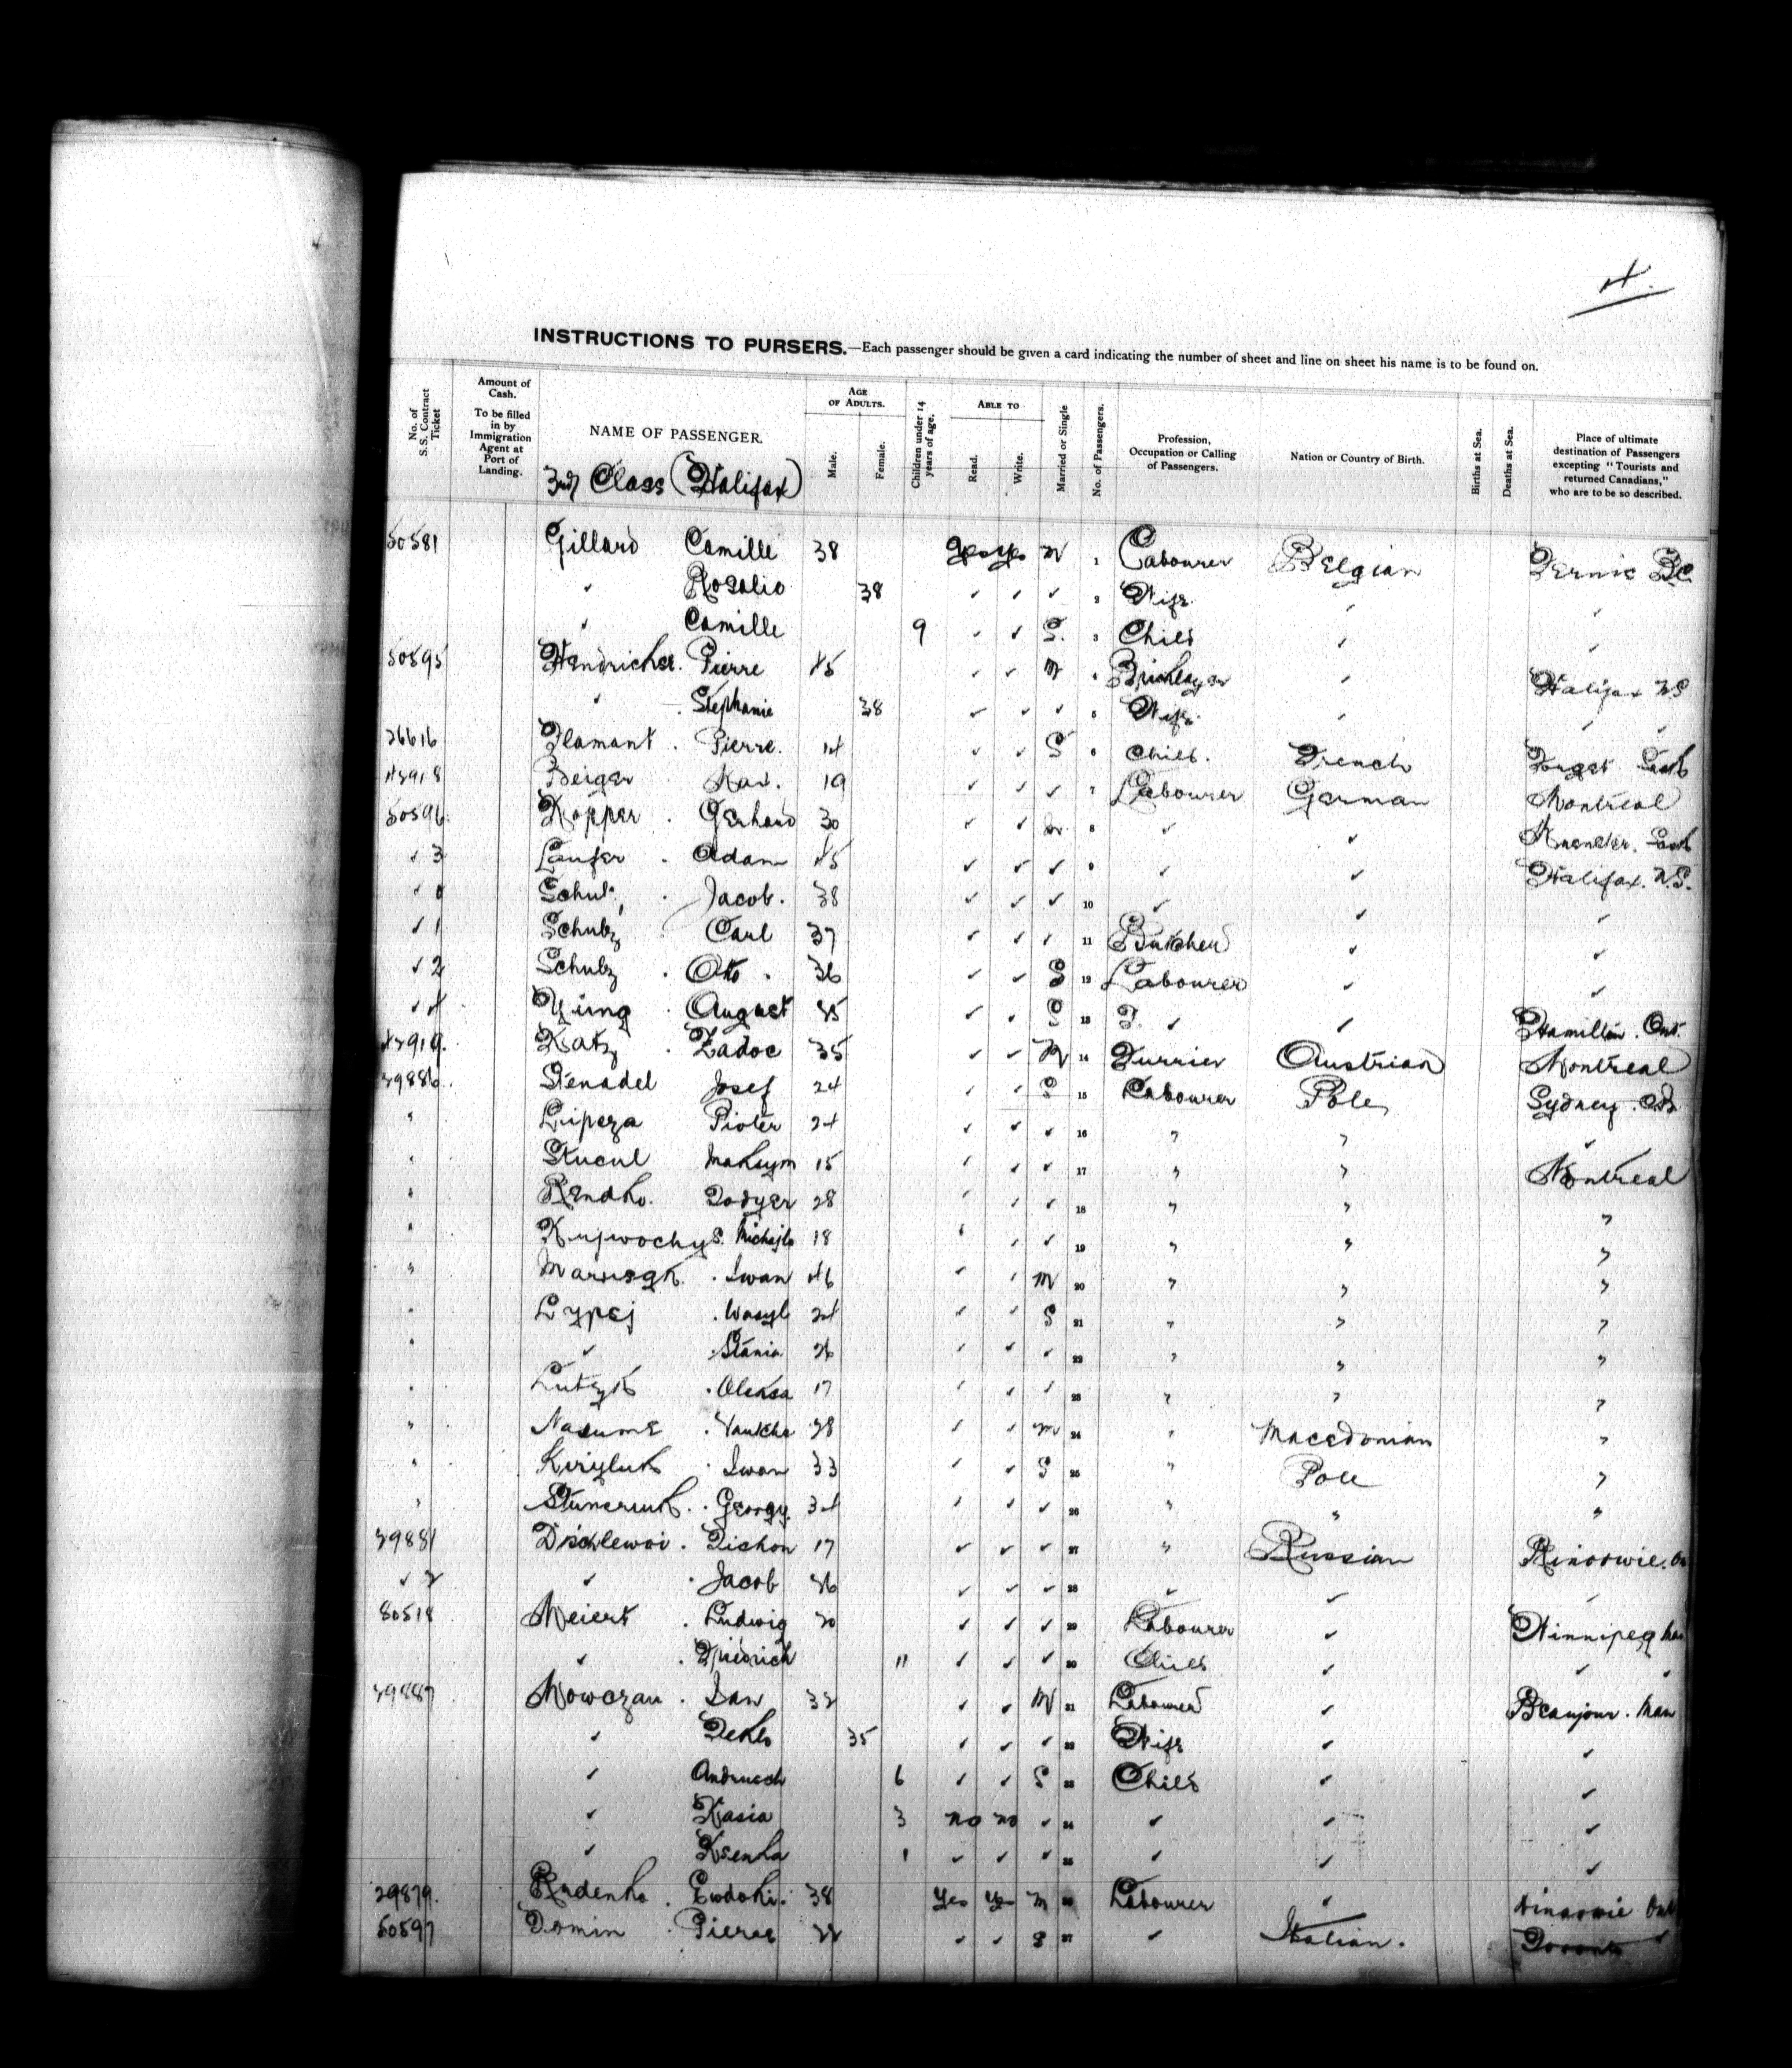 4.
INSTRUCTIONS TO PURSERS.—Each passenger should be given a card indicating the number of sheet and line on sheet his name is to be found on.
No. of S.S. Contract Ticket
Amount of Cash. To be filled in by Immigration Agent at Port of Landing.
NAME OF PASSENGER.
3rd Class (Halifax)
AGE OF ADULTS.
Male.
Female.
Children under 14 years of age.
ABLE TO
Read.
Write.
Married or Single
No. of Passengers.
Profession, Occupation or Calling of Passengers.
Nation or Country of Birth.
Births at Sea.
Deaths at Sea.
Place of ultimate destination of Passengers excepting "Tourists and returned Canadians," who are to be so described.
50581 Gillard Camille 38 Yes Yes M 1 Labourer Belgian Fernie BC
✓ Rosalie 38 ✓ ✓ ✓ 2 Wife ✓ ✓
✓ Camille 9 ✓ ✓ S. 3 Child ✓ ✓
50595 Pierre 45 ✓ ✓ M 4 Bricklayer ✓ Halifax NS
✓ Stephanie 38 ✓ ✓ ✓ 5 Wife ✓ ✓
26616 Flamant Pierre. 14 ✓ ✓ S 6 Child. French Forget Sask
Beiger 19 ✓ ✓ ✓ 7 Labourer German Montreal
50596 Kopper Gerhard 30 ✓ ✓ M 8 ✓ ✓ Sask
✓ 3 Laufer Adam 45 ✓ ✓ ✓ 9 ✓ ✓ Halifax. N.S.
✓ 0 Jacob. 38 ✓ ✓ ✓ 10 ✓ ✓ ✓
✓ 1 Schulz Carl 37 ✓ ✓ ✓ 11 Butcher ✓ ✓
✓ 2 Schulz Otto 36 ✓ ✓ S 12 Labourer ✓ ✓
✓ 4 August ✓ ✓ S 13 ✓ ✓ Hamilton. Ont.
Katz Zadoc 35 ✓ ✓ M 14 Furrier Austrian Montreal
39886 Josef 24 ✓ ✓ S 15 Labourer Pole Sydney. CB
" Lipeza Pioter 24 ✓ ✓ ✓ 16 " " ✓
" Kucul Maksym 15 ✓ ✓ ✓ 17 " " Montreal
" 28 ✓ ✓ ✓ 18 " " "
" Michajlo 18 ✓ ✓ ✓ 19 " " "
" Iwan 46 ✓ ✓ M 20 " " "
" Lypej Wasyl 24 ✓ ✓ S 21 " " "
" ✓ 26 ✓ ✓ ✓ 22 " " "
" Oleksa 17 ✓ ✓ ✓ 23 " " "
" Naoume 28 ✓ ✓ M 24 " Macedonian "
" Kiryluk Iwan 33 ✓ ✓ S 25 " Pole "
" Georgy. 34 ✓ ✓ ✓ 26 " " "
39881 Tichon 17 ✓ ✓ ✓ 27 " Russian
✓ 2 ✓ Jacob 36 ✓ ✓ ✓ 28 ✓ ✓ ✓
50518 Meiert Ludwig 20 ✓ ✓ ✓ 29 Labourer ✓ Winnipeg Man
✓ Friedrich 11 ✓ ✓ ✓ 30 Child ✓ ✓
39887 Nowczan 32 ✓ ✓ M 31 Labourer ✓ Beaujour. Man
✓ 35 ✓ ✓ ✓ 32 Wife ✓ ✓
✓ Andrusch 6 ✓ ✓ S 33 Child ✓ ✓
✓ Kasia 3 no no ✓ 34 ✓ ✓ ✓
✓ Ksenka 1 ✓ ✓ ✓ 35 ✓ ✓ ✓
29879 Rudenko 38 Yes Yes M 36 Labourer ✓ Ont
50597 Domin Pierre 22 ✓ ✓ S 37 ✓ Italian. Toronto